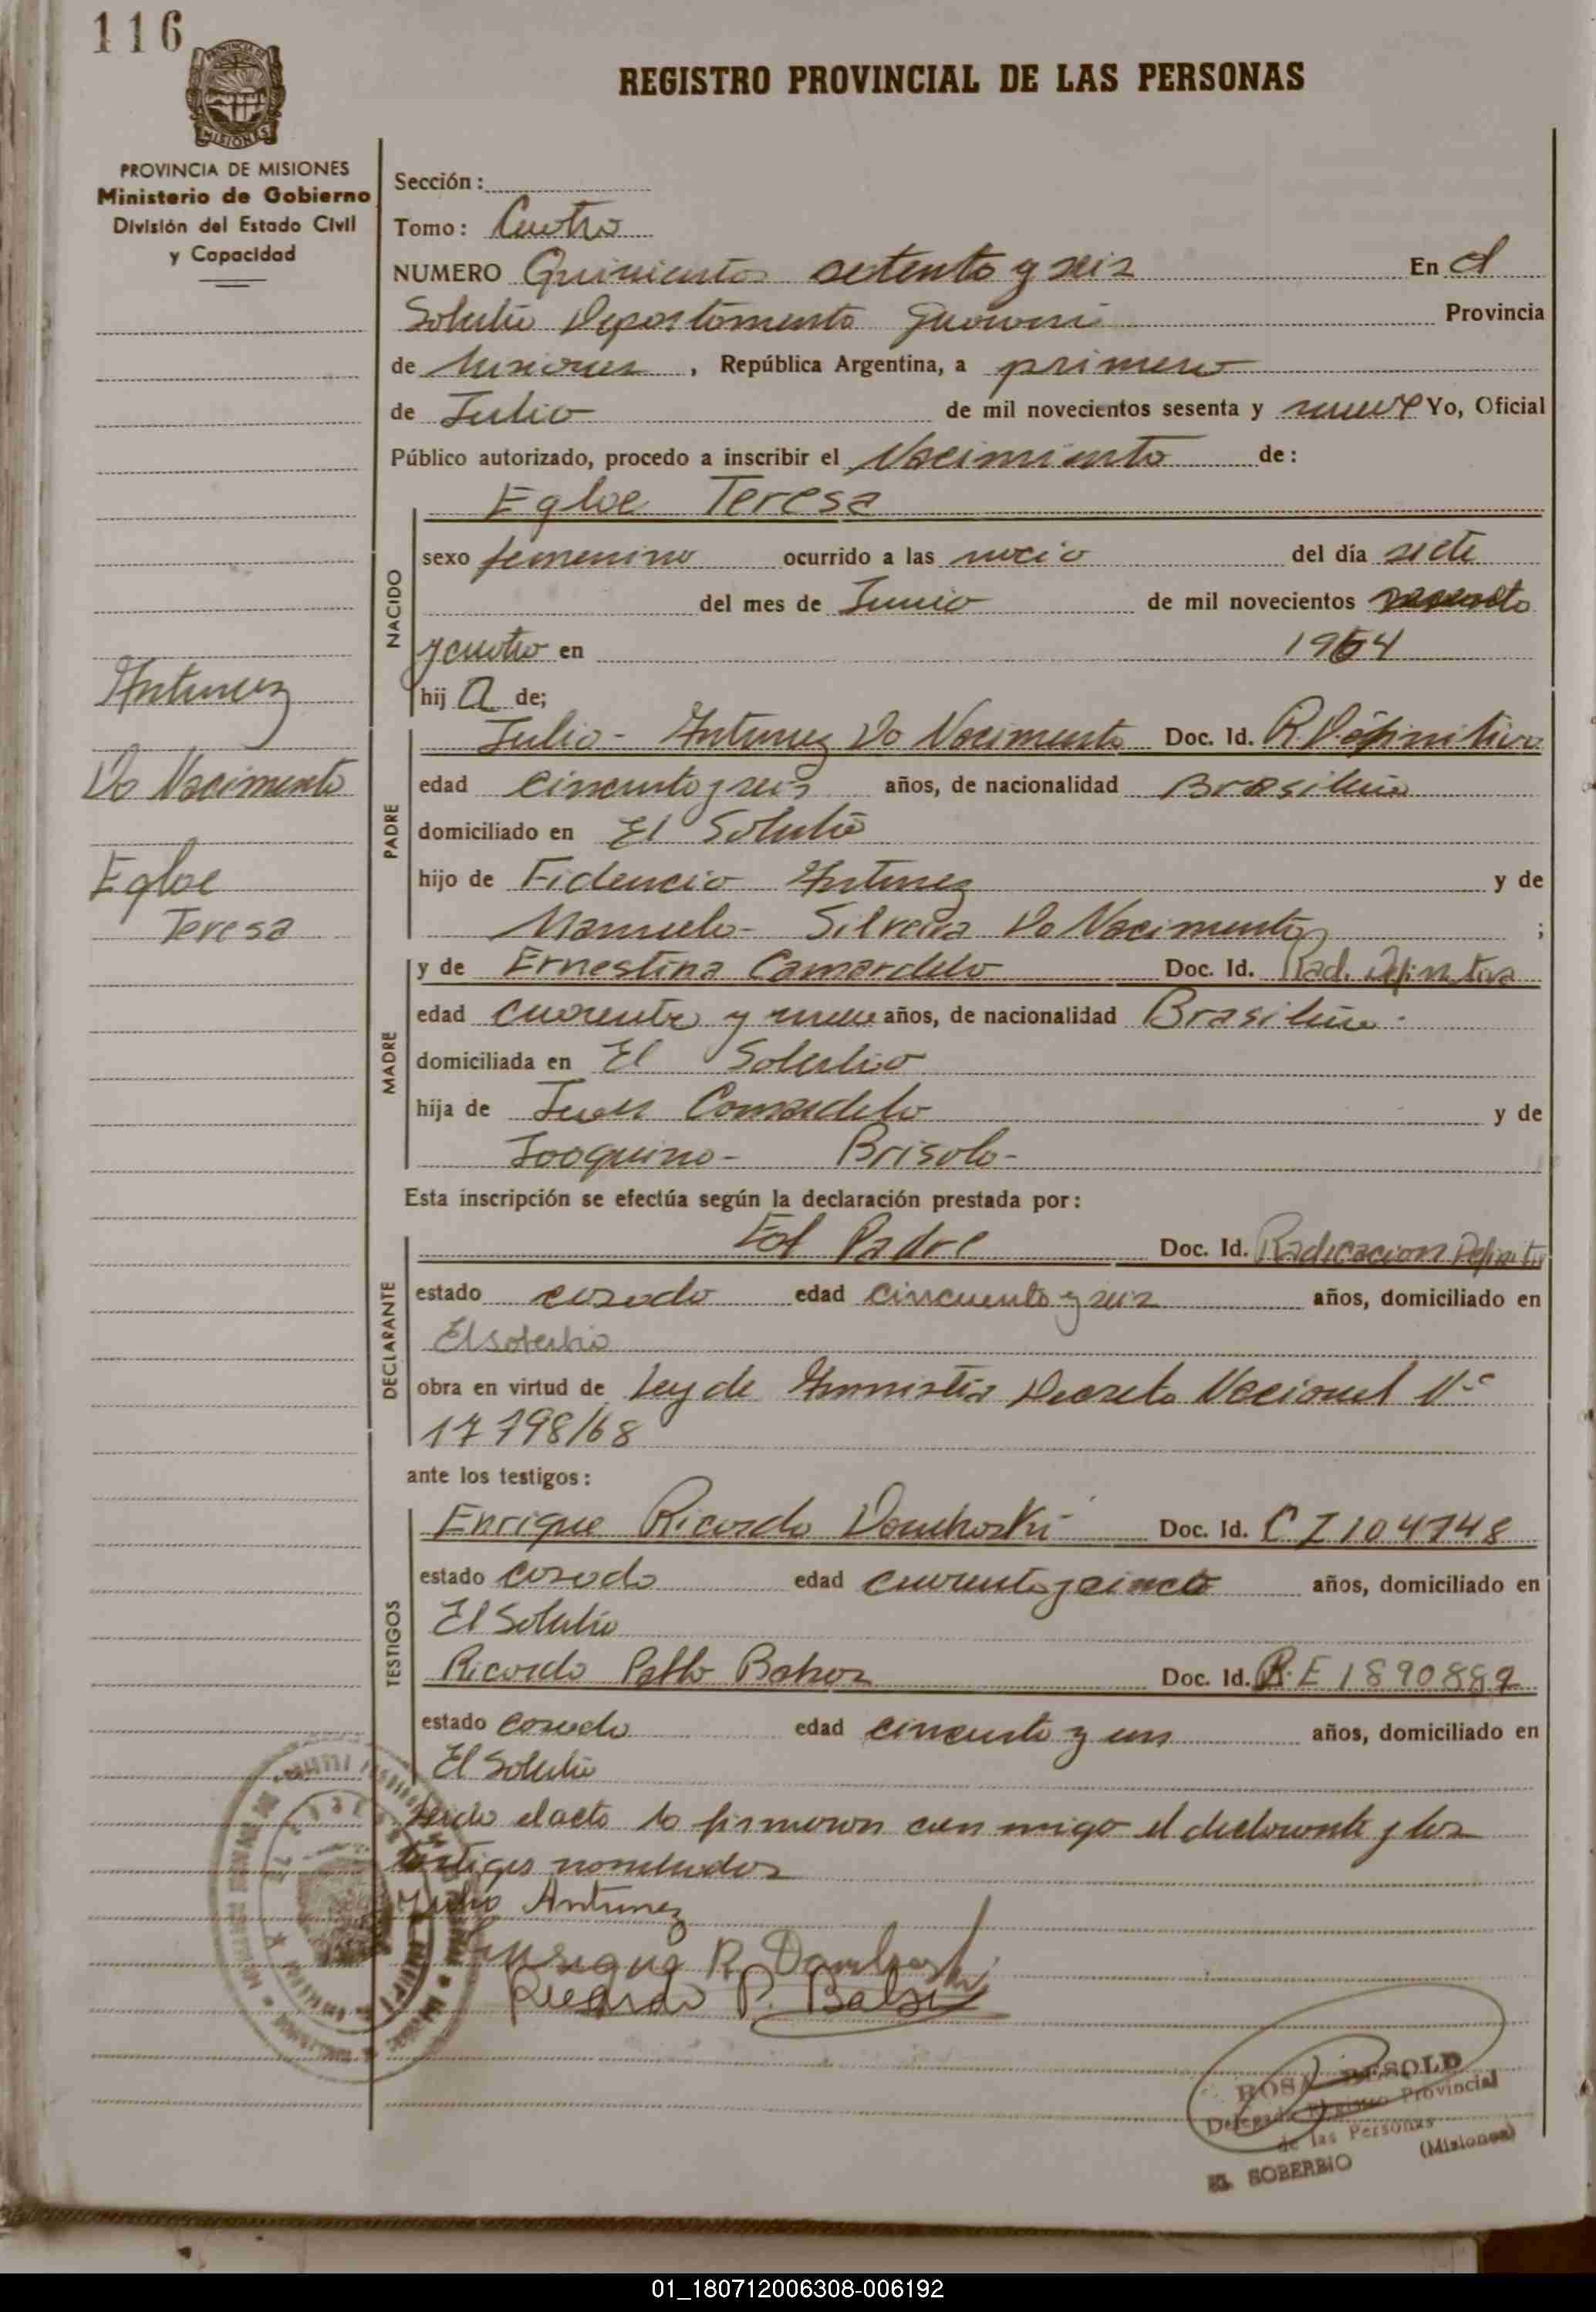 116
PROVINCIA DE
MISIONES
REGISTRO PROVINCIAL DE LAS PERSONAS
PROVINCIA DE MISIONES
Ministerio de Gobierno
División del Estado Civil
y Capacidad
Sección:
Tomo: Cuatro
NUMERO Quinientos setenta y seis En El
Soberbio Departamento Guarani Provincia
de Misiones, República Argentina, a primero
de Julio de mil novecientos sesenta y nueve Yo, Oficial
Público autorizado, procedo a inscribir el Nacimiento de:
Egloe Teresa
NACIDO
sexo femenino ocurrido a las del día siete
del mes de Junio de mil novecientos sesenta
y cuatro en 1964
hij a de;
Antunez
Do Nacimento
Egloe
Teresa
PADRE
Julio - Antunez Do Nacimento Doc. Id. R. Definitiva
edad cincuenta y seis años, de nacionalidad Brasileña
domiciliado en El Soberbio
hijo de Fidencio Antunez y de
Manuela - Silveira Do Nacimento ;
MADRE
y de Ernestina Camardelo Doc. Id. Rad. Definitiva
edad cuarenta y nueve años, de nacionalidad Brasileña -
domiciliada en El Soberbio
hija de Juan Camardelo y de
Joaquina - Brisola -
Esta inscripción se efectúa según la declaración prestada por:
DECLARANTE
El Padre Doc. Id. Radicacion Definitiv
estado casado edad cincuenta y seis años, domiciliado en
El Soberbio
obra en virtud de Ley de Amnistia Decreto Nacional Nº
17798/68
ante los testigos:
TESTIGOS
Enrique Ricardo Doc. Id. C I 104748
estado casado edad cuarenta y cinco años, domiciliado en
El Soberbio
Ricardo Pablo Doc. Id. R. E 1890889
estado casado edad cincuenta y un años, domiciliado en
El Soberbio
Leido el acta la firmaron con migo el declarante y los
testigos nombrados
Julio Antunez
Enrique R.
Ricardo P.
ROSA BESOLD
Delegada Registro Provincial
de las Personas
EL SOBERBIO (Misiones)
01_180712006308-006192